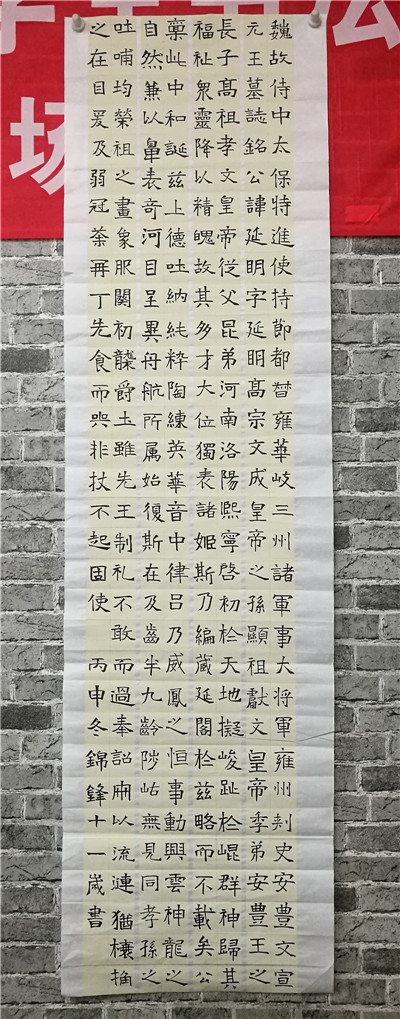 场
魏故侍中太保特進使持節都督雍華岐三州諸軍事大将軍雍州刾史安豊文宣
元王墓誌銘公諱延明字延明髙宗文成皇帝之孫顯祖獻文皇帝季弟安豊王之
長子髙祖孝文皇帝從父昆弟河南洛陽熙寧啓初於天地擬峻趾於崐群神歸其
福祉衆靈降以精魄故其多才大位獨表諸姬斯乃編蔵延閣於兹略而不載矣公
稟此中和誕兹上德吐納純粹陶練英華音中律吕乃威鳳之恒事動興雲神龍之
自然兼以鼻表奇河目呈異舟航所属始復斯在及齒半九齡陟岵無見同孝孫之
吐哺均榮祖之畫象服闋初襲爵土雖先王制礼不敢而過奉詔廟以流漣猶欀桷
之在目爰及弱冠荼再丁先食而哭非扙不起固使 丙申冬錦鋒十一嵗書